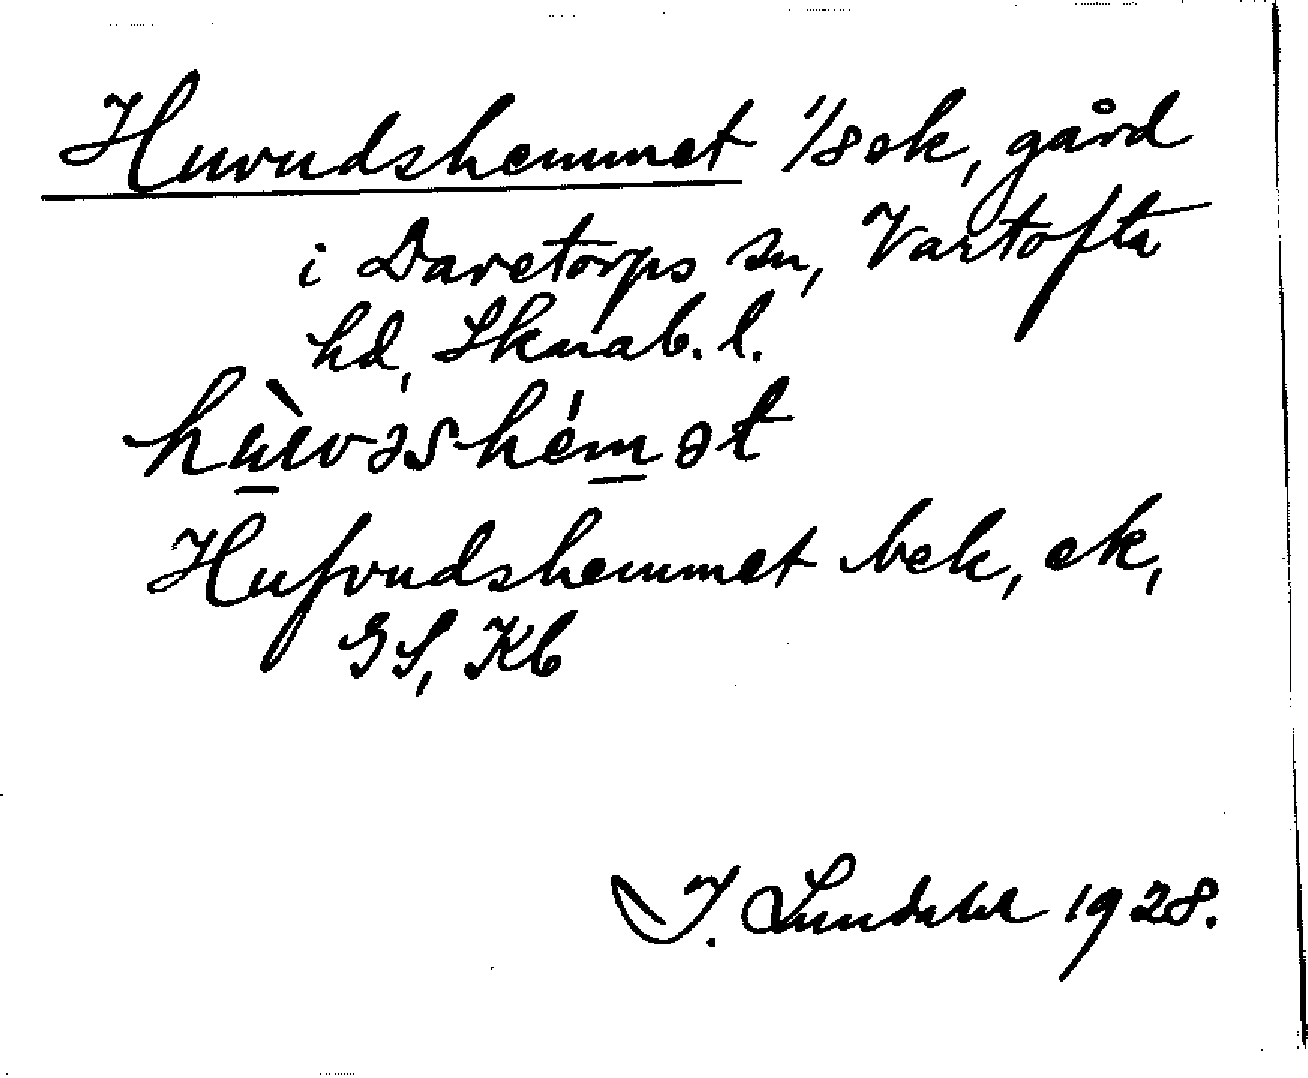 Huvudshemmet 1/8 ek, gård
i Daretorps sn, Vartofta
hd, Skarab. l.
hùvəshémət
Hufvudshemmet bek, ek,
GS, Kb
I. Lundahl 1928.